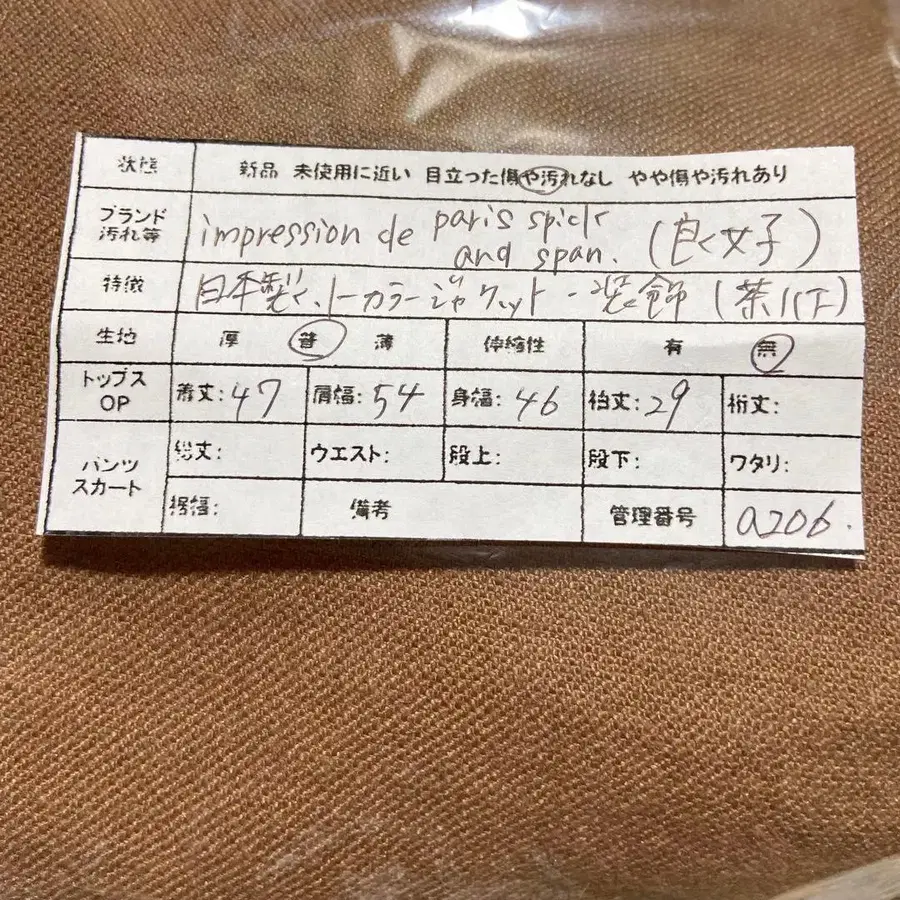 状態 新品 未使用に近い 目立った傷や汚れなし やや傷や汚れあり
ブランド 汚れ等 impression de paris spick and span. (良く女子)
特徴 日本製く、トーカラージャケット・装飾 (茶
生地 厚 普 薄 伸縮性 有 無
トップス OP 着丈:47 肩幅:54 身幅:46 裄丈:29 裄丈:
パンツ スカート 総丈: ウエスト: 股上: 股下: ワタリ:
裾幅: 備考 管理番号 a206.